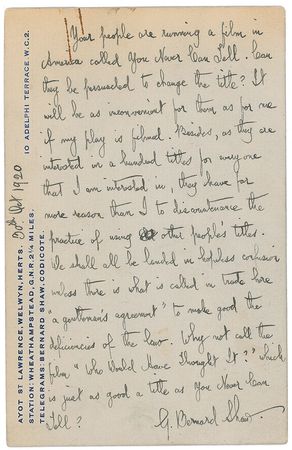 Your people are running a film in
America called You Never Can Tell. Can
they be persuaded to change the title? It
will be as inconvenient for them as for me
if my play is filmed. Besides, as they are
interested in a hundred titles for every one
that I am interested in, they have far
more reason than I to discountenance the
practice of using other people's titles.
We shall all be landed in hopeless confusion
unless there is what is called in trade here
"a gentlemen's agreement" to make good the
deficiencies of the law. Why not call the
film "Who Would Have Thought It?" which
is just as good a title as You Never Can
Tell?
G. Bernard Shaw
10 ADELPHI TERRACE W.C.2.
30th Oct 1920
AYOT ST LAWRENCE, WELWYN, HERTS.
STATION, WHEATHAMPSTEAD, G.N.R. 2¼ MILES.
TELEGRAMS: BERNARD SHAW, CODICOTE.